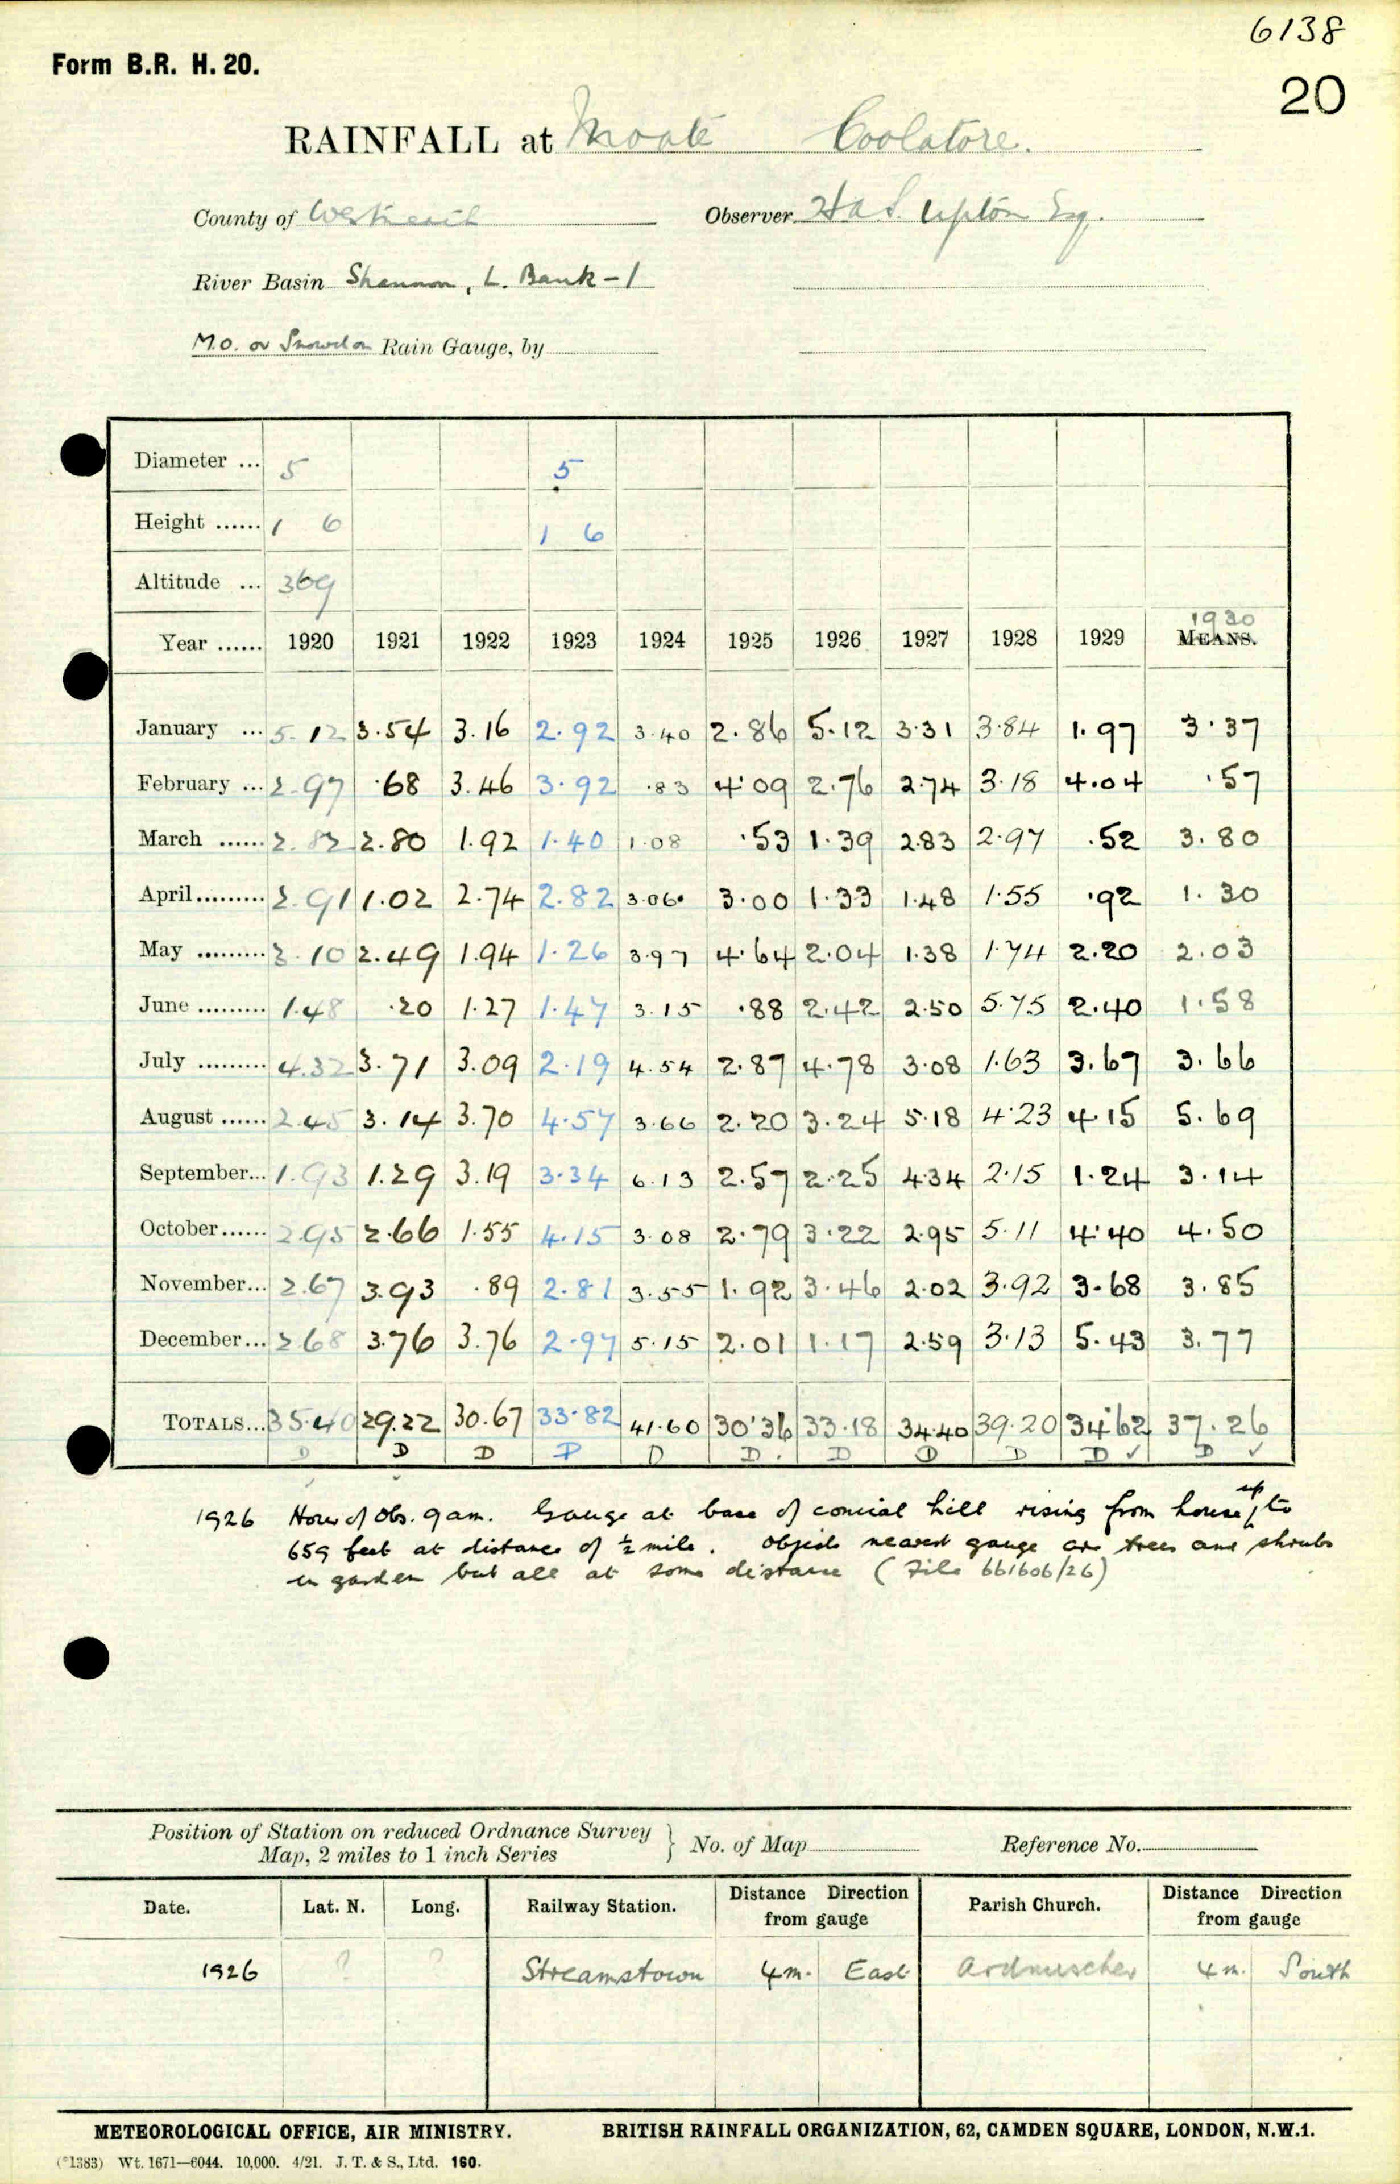 6138
Form B.R. H. 20.
20
RAINFALL at Moate Coolatore.
County of Westmeath Observer H a S Upton Esq.
River Basin Shannon, L. Bank-1
M.O. or Snowdon Rain Gauge, by
Diameter ... 5 5
Height ...... 1 6 1 6
Altitude ... 369
1930
Year ...... 1920 1921 1922 1923 1924 1925 1926 1927 1928 1929 MEANS.
January ... 5.12 3.54 3.16 2.92 3.40 2.86 5.12 3.31 3.84 1.97 3.37
February ... 2.97 .68 3.46 3.92 .83 4.09 2.76 2.74 3.18 4.04 .57
March ...... 2.82 2.80 1.92 1.40 1.08 .53 1.39 2.83 2.97 .52 3.80
April......... 2.91 1.02 2.74 2.82 3.06 3.00 1.33 1.48 1.55 .92 1.30
May ......... 3.10 2.49 1.94 1.26 3.97 4.64 2.04 1.38 1.74 2.20 2.03
June ......... 1.48 .20 1.27 1.47 3.15 .88 2.42 2.50 5.75 2.40 1.58
July ......... 4.32 3.71 3.09 2.19 4.54 2.87 4.78 3.08 1.63 3.67 3.66
August ...... 2.45 3.14 3.70 4.57 3.66 2.20 3.24 5.18 4.23 4.15 5.69
September... 1.93 1.29 3.19 3.34 6.13 2.57 2.25 4.34 2.15 1.24 3.14
October...... 2.95 2.66 1.55 4.15 3.08 2.79 3.22 2.95 5.11 4.40 4.50
November... 2.67 3.93 .89 2.81 3.55 1.92 3.46 2.02 3.92 3.68 3.85
December... 2.68 3.76 3.76 2.97 5.15 2.01 1.17 2.59 3.13 5.43 3.77
TOTALS... 35.40 29.22 30.67 33.82 41.60 30.36 33.18 34.40 39.20 34.62 37.26
D D D D D D. D D D D ✓ D ✓
1926 Hour of Obs. 9 am. Gauge at base of conical hill rising from house up to
659 feet at distance of ½ mile. Objects nearest gauge are trees and shrubs
in garden but all at some distance (File 661606/26)
Position of Station on reduced Ordnance Survey
Map, 2 miles to 1 inch Series } No. of Map Reference No.
Date. Lat. N. Long. Railway Station. Distance Direction from gauge Parish Church. Distance Direction from gauge
1926 ? ? Streamstown 4m. East Ardnurcher 4m. South
METEOROLOGICAL OFFICE, AIR MINISTRY. BRITISH RAINFALL ORGANIZATION, 62, CAMDEN SQUARE, LONDON, N.W.1.
(*1383) Wt. 1671—6044. 10,000. 4/21. J. T. & S., Ltd. 160.